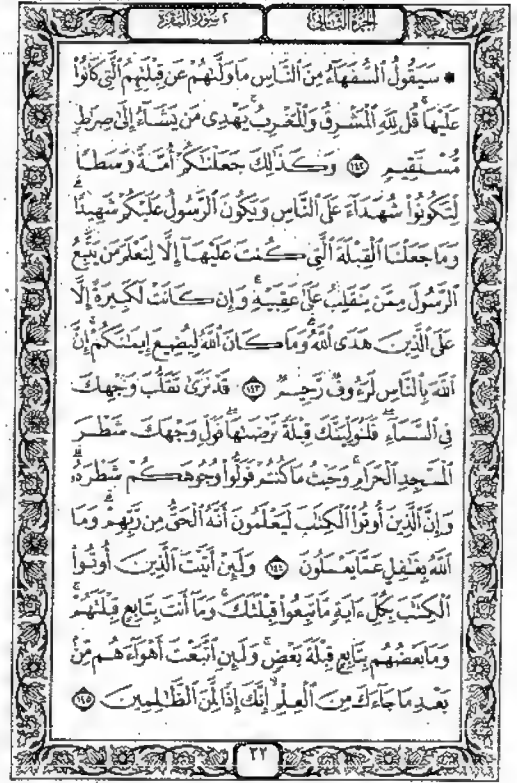 الجزء الثاني
٢ سورة البقرة
* سَيَقُولُ ٱلسُّفَهَآءُ مِنَ ٱلنَّاسِ مَا وَلَّىٰهُمْ عَن قِبْلَتِهِمُ ٱلَّتِى كَانُوا۟
عَلَيْهَا ۚ قُل لِّلَّهِ ٱلْمَشْرِقُ وَٱلْمَغْرِبُ ۚ يَهْدِى مَن يَشَآءُ إِلَىٰ صِرَٰطٍ
مُّسْتَقِيمٍ ١٤٢ وَكَذَٰلِكَ جَعَلْنَٰكُمْ أُمَّةً وَسَطًا
لِّتَكُونُوا۟ شُهَدَآءَ عَلَى ٱلنَّاسِ وَيَكُونَ ٱلرَّسُولُ عَلَيْكُمْ شَهِيدًا ۗ
وَمَا جَعَلْنَا ٱلْقِبْلَةَ ٱلَّتِى كُنتَ عَلَيْهَآ إِلَّا لِنَعْلَمَ مَن يَتَّبِعُ
ٱلرَّسُولَ مِمَّن يَنقَلِبُ عَلَىٰ عَقِبَيْهِ ۚ وَإِن كَانَتْ لَكَبِيرَةً إِلَّا
عَلَى ٱلَّذِينَ هَدَى ٱللَّهُ ۗ وَمَا كَانَ ٱللَّهُ لِيُضِيعَ إِيمَٰنَكُمْ ۚ إِنَّ
ٱللَّهَ بِٱلنَّاسِ لَرَءُوفٌ رَّحِيمٌ ١٤٣ قَدْ نَرَىٰ تَقَلُّبَ وَجْهِكَ
فِى ٱلسَّمَآءِ ۖ فَلَنُوَلِّيَنَّكَ قِبْلَةً تَرْضَىٰهَا ۚ فَوَلِّ وَجْهَكَ شَطْرَ
ٱلْمَسْجِدِ ٱلْحَرَامِ ۚ وَحَيْثُ مَا كُنتُمْ فَوَلُّوا۟ وُجُوهَكُمْ شَطْرَهُۥ ۗ
وَإِنَّ ٱلَّذِينَ أُوتُوا۟ ٱلْكِتَٰبَ لَيَعْلَمُونَ أَنَّهُ ٱلْحَقُّ مِن رَّبِّهِمْ ۗ وَمَا
ٱللَّهُ بِغَٰفِلٍ عَمَّا يَعْمَلُونَ ١٤٤ وَلَئِنْ أَتَيْتَ ٱلَّذِينَ أُوتُوا۟
ٱلْكِتَٰبَ بِكُلِّ ءَايَةٍ مَّا تَبِعُوا۟ قِبْلَتَكَ ۚ وَمَآ أَنتَ بِتَابِعٍ قِبْلَتَهُمْ ۚ
وَمَا بَعْضُهُم بِتَابِعٍ قِبْلَةَ بَعْضٍ ۚ وَلَئِنِ ٱتَّبَعْتَ أَهْوَآءَهُم مِّنۢ
بَعْدِ مَا جَآءَكَ مِنَ ٱلْعِلْمِ ۙ إِنَّكَ إِذًا لَّمِنَ ٱلظَّٰلِمِينَ ١٤٥
٢٢